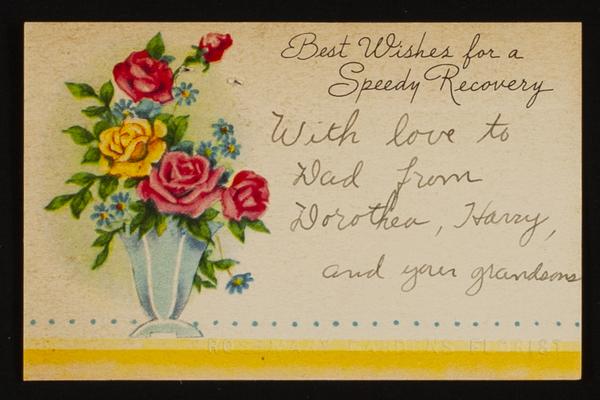 Best Wishes for a
Speedy Recovery
With love to
Dad from
Dorothea, Harry,
and your grandsons
GARDENS FLORIST